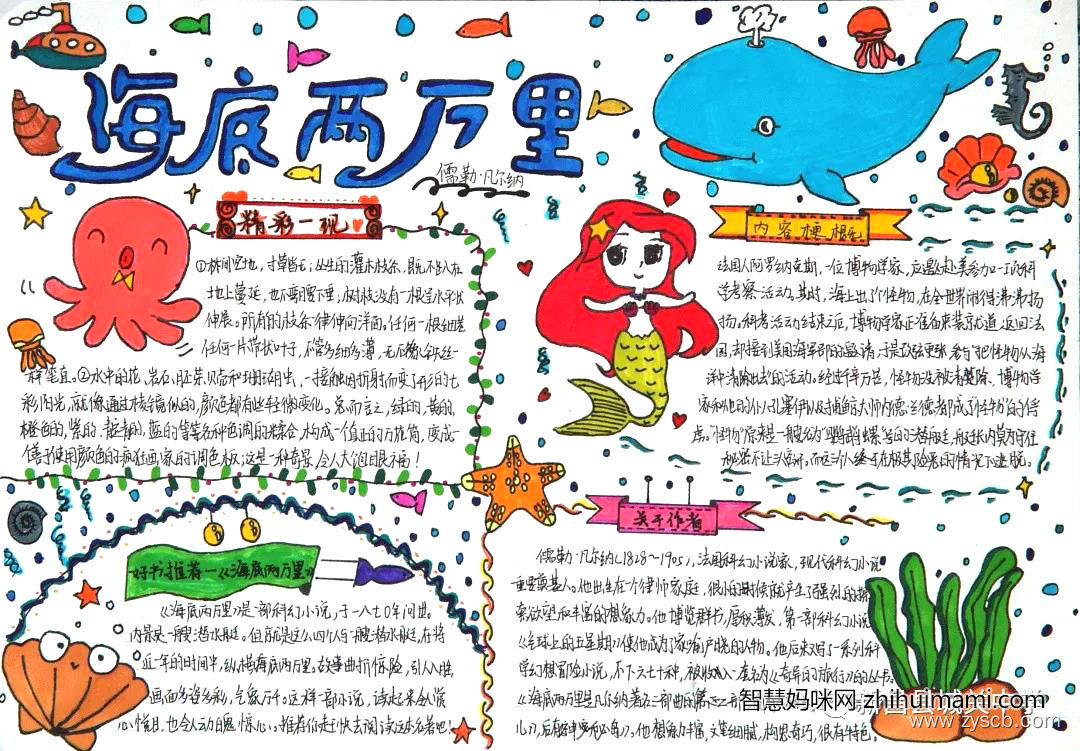 海底两万里
儒勒·凡尔纳
精彩一现
①林间空地,寸草皆无;丛生的灌木枝杂,既不匍在
地上蔓延,也不弯腰下垂;树枝没有一根呈水平状
伸展。所有的枝杂一律伸向洋面。任何一根细茎
任何一片带状叶子,不管多细多薄,无不像钢丝一
样笔直。②水中的花、岩石、胚芽、贝壳和珊瑚虫,一接触因折射而变了形的七
彩阳光,就像通过棱镜似的,颜色都有些轻微变化。总而言之,绿的、黄的、
橙色的,紫的、靛青的、蓝的等等各种色调的糅合,构成一值正的万花筒,变成一
善于使用颜色的疯狂画家的调色板;这是一种奇景,令人大饱眼福!
内容梗概
法国人阿罗纳克斯,一位博物学家,应邀赴美参加一项科
学考察活动。其时,海上出了个怪物,在全世界闹得沸沸扬
扬。科考活动结束之后,博物学家正准备束装就道,返回法
国,却接到美国海军部的邀请,于是改弦更张,参与把怪物从海
洋中清除出去的活动。经过千辛万苦,怪物没被清除、博物学
家和他的仆人孔塞伊以及捕鲸大师内德·兰德都成了怪物的俘
虏。“怪物”原来是一艘名为“鹦鹉螺”号的潜艇,艇长内莫为守住
秘密不让
好书推荐—《海底两万里》
《海底两万里》是一部科幻小说,于一八七0年问世。
内景是一艘潜水艇。但就是这么四个人与一艘潜水艇,在将
近一年的时间中,纵横海底两万里。故事曲折惊险,引人入胜,
画面多姿多彩,气象万千。这样一部小说,读起来会赏
心悦目,也会动魄惊心。推荐你赶快去阅读这部名著吧!
关于作者
儒勒·凡尔纳(1828～1905),法国科幻小说家,现代科幻小说
重要奠基人。他出生在一个律师家庭,很小的时候就产生了强烈的探
索欲望和丰富的想象力。他博览群书,厚积薄发,第一部科幻小说
《气球上的五星期》使他成为了家喻户晓的人物。他后来又写了一系列科
学幻想冒险小说,不下六七十种,被收入一套名为《奇异的旅行》的丛书。
《海底两万里》是凡尔纳著名三部曲的第二部
他想象力丰富,文笔细腻,构思奇巧,很有特色。
智慧妈咪网 zhihuimami.com
www.zyscb.com